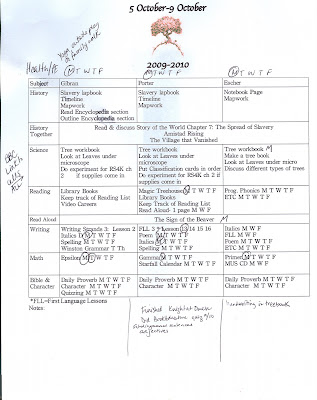 5 October-9 October
Health/PE M T W T F
M T W T F
M T W T F
2009-2010
Subject Gibran Porter Escher
History
Slavery lapbook
Timeline
Mapwork
Read Encyclopedia section
Outline Encyclopedia section
Slavery lapbook
Timeline
Mapwork
Notebook Page
Mapwork
History Together
Read & discuss Story of the World Chapter 7: The Spread of Slavery
Amistad Rising
The Village that Vanished
Science
Tree workbook
Look at Leaves under microscope
Do experiment for RS4K ch 2 if supplies come in
Tree workbook
Look at Leaves under microscope
Put Classification cards in order
Do experiment for RS4K ch 2 if supplies come in
Tree workbook M
Make a tree book
Look at Leaves under micro
Discuss different types of trees
Reading
Library Books
Keep track of Reading List
Video Careers
Magic Treehouse M T W T F
Library Books
Keep Track of Reading List
Read Aloud- 1 page M W F
Prog. Phonics M T W T F
ETC M T W T F
Read Aloud The Sign of the Beaver M
Writing
Writing Strands 3: Lesson 2
Italics D M T W T F
Spelling M T W T F
Winston Grammar T Th
FLL 3 * Lesson 13 14 15 16
Poem M T W T F
Italics M T W T F
Spelling M T W T F
Italics M W F
FLL M W F
Poem M T W T F
ETC M T W T F
Math
Epsilon M T W T F
Gamma M T W T F
Starfall Calendar M T W T F
Primer M T W T F
MUS CD M W F
Bible & Character
Daily Proverb M T W T F
Character M T W T F
Quizzing M T W T F
Daily Proverb M T W T F
Character M T W T F
Daily Proverb M T W T F
Character M T W T F
*FLL=First Language Lessons
Notes:
Finished
Did
adjectives
handwriting in